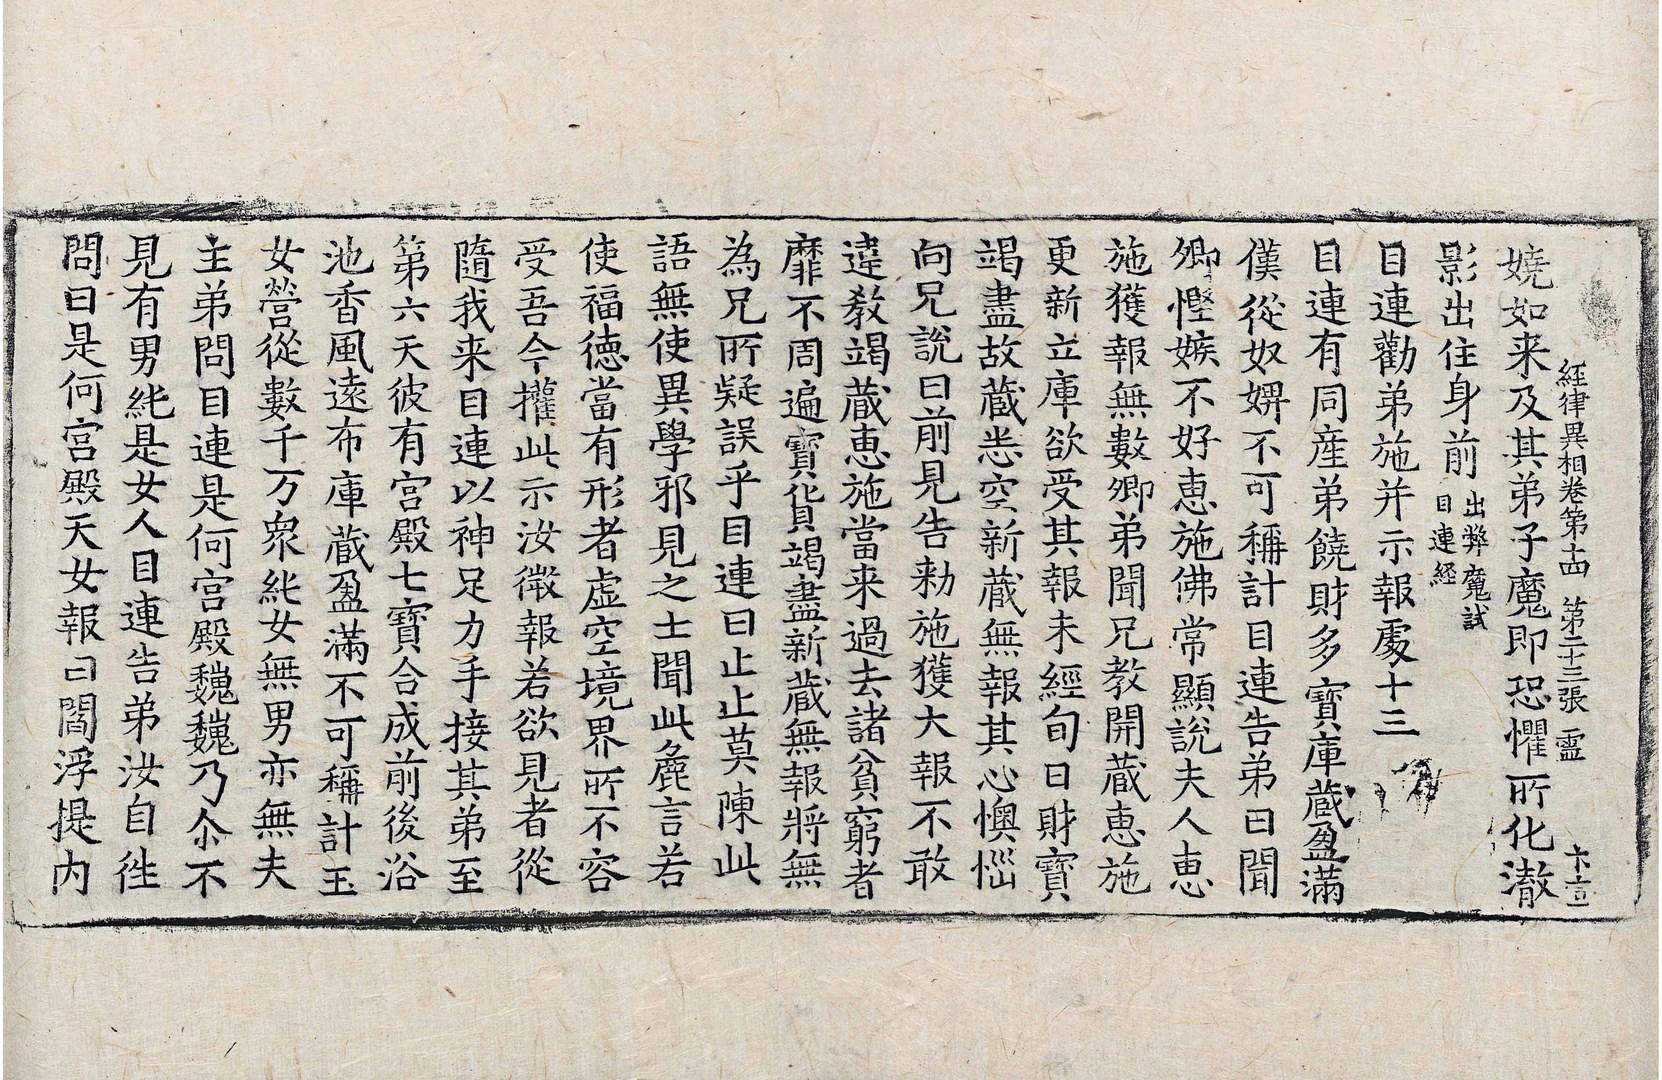 經律異相卷第十四 第二十三張 靈
嬈如来及其弟子魔即恐懼所化澈
影出住身前出弊魔試目連經
目連勸弟施并示報處十三
目連有同產弟饒財多寶庫藏盈滿
僕從奴婢不可稱計目連告弟曰聞
卿慳嫉不好惠施佛常顯說夫人惠
施獲報無數卿弟聞兄教開藏惠施
更新立庫欲受其報未經旬日財寶
竭盡故藏悉空新藏無報其心懊惱
向兄說曰前見告勑施獲大報不敢
違教竭藏惠施當来過去諸貧窮者
靡不周遍寶貨竭盡新藏無報將無
為兄所疑誤乎目連曰止止莫陳此
語無使異學邪見之士聞此麁言若
使福德當有形者虛空境界所不容
受吾今權此示汝徵報若欲見者從
隨我来目連以神足力手接其弟至
第六天彼有宮殿七寶合成前後浴
池香風遠布庫藏盈滿不可稱計玉
女營從數千万眾純女無男亦無夫
主弟問目連是何宮殿巍巍乃尒不
見有男純是女人目連告弟汝自徃
問曰是何宮殿天女報曰閻浮提内